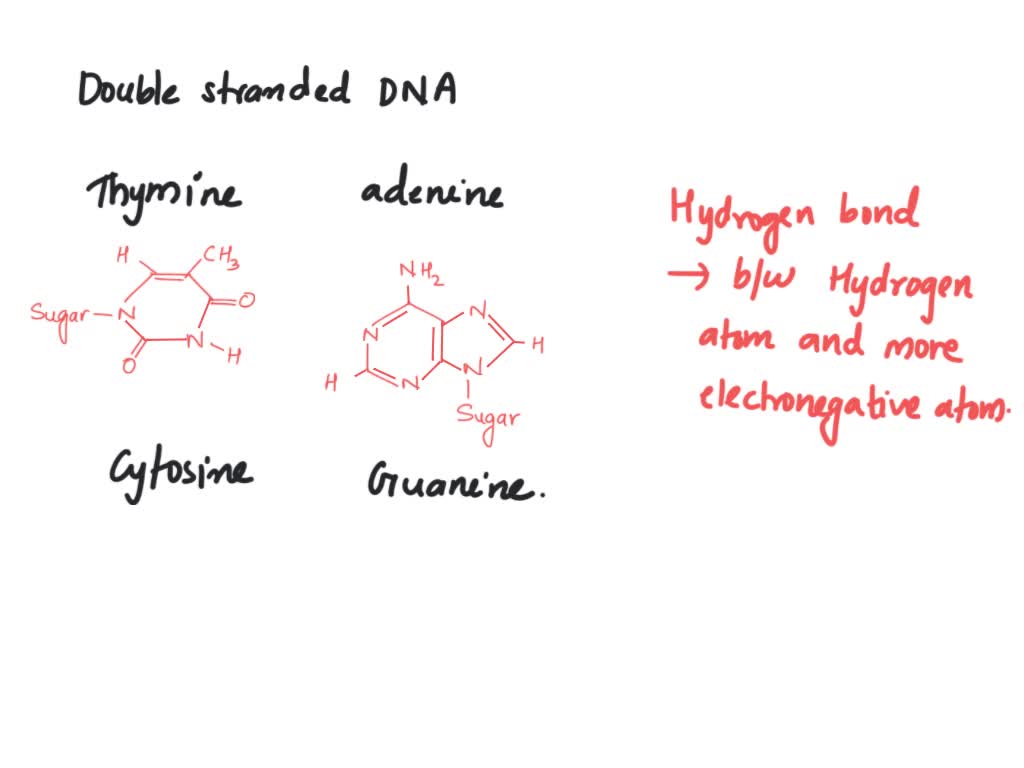 Double stranded DNA
Thymine adenine
Hydrogen bond
→ b/w Hydrogen
atom and more
electronegative atom.
H CH3
Sugar N O
O N H
NH2
N N
H N N H
Sugar
Cytosine Guaneine.